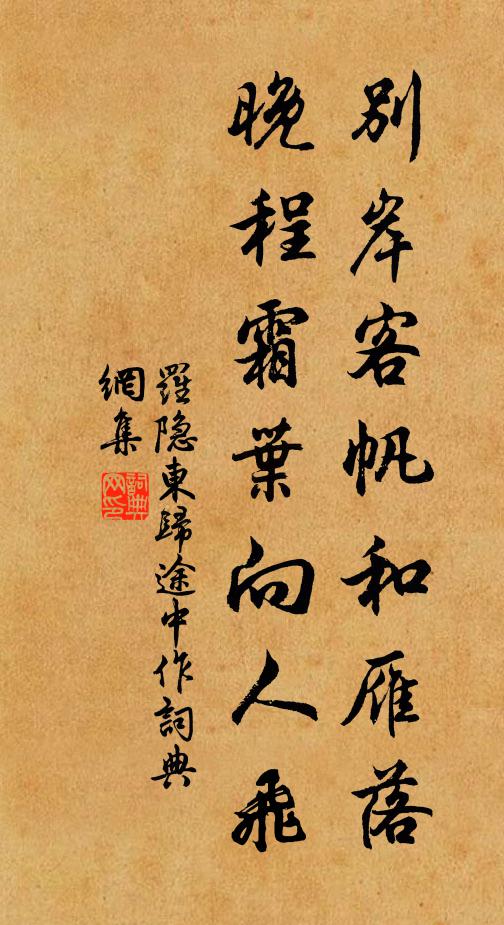 別岸客帆和雁落
晚程霜葉向人飛
羅隐東歸途中作詞典
網集
詞典
网印